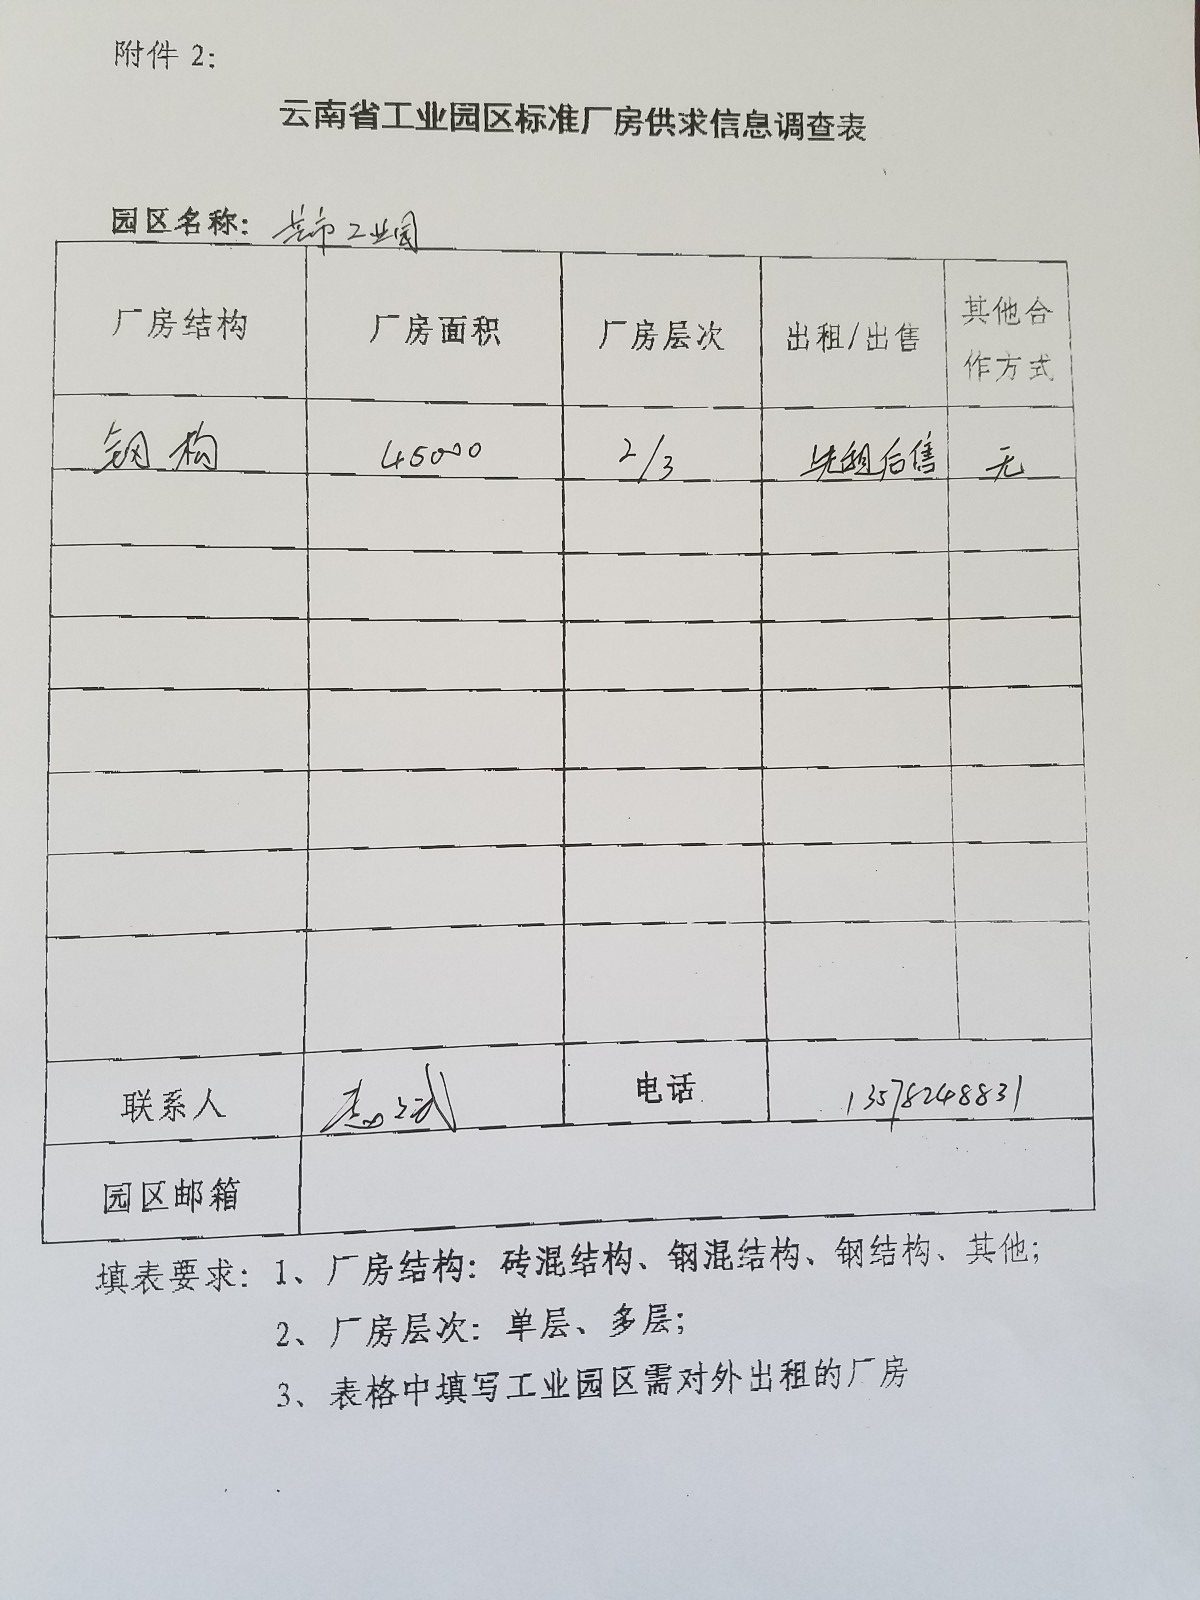 附件 2：
云南省工业园区标准厂房供求信息调查表
园区名称：芒市工业园
厂房结构 厂房面积 厂房层次 出租/出售 其他合作方式
钢构 45000 2/3 先租后售 无
联系人 电话 13578248831
园区邮箱
填表要求：1、厂房结构：砖混结构、钢混结构、钢结构、其他；
2、厂房层次：单层、多层；
3、表格中填写工业园区需对外出租的厂房